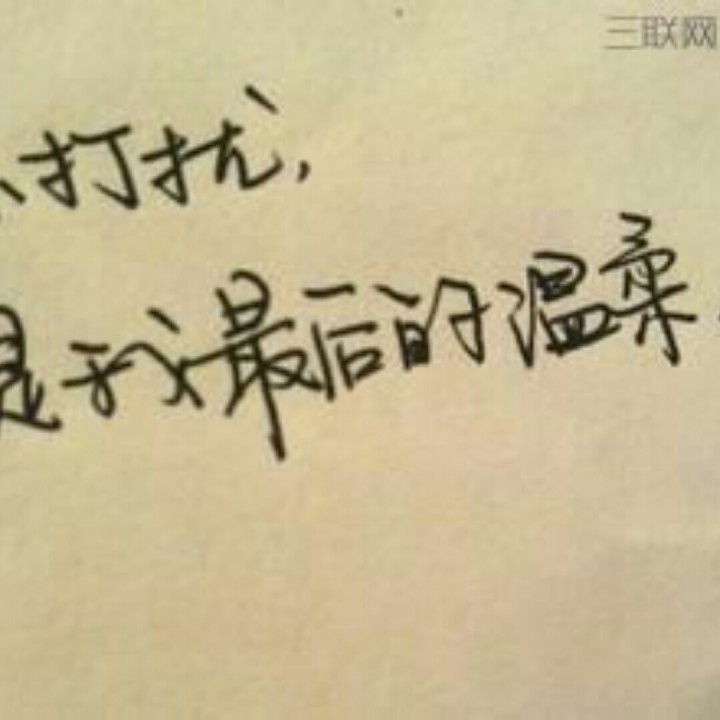 三联网
不打扰，
是我最后的温柔.